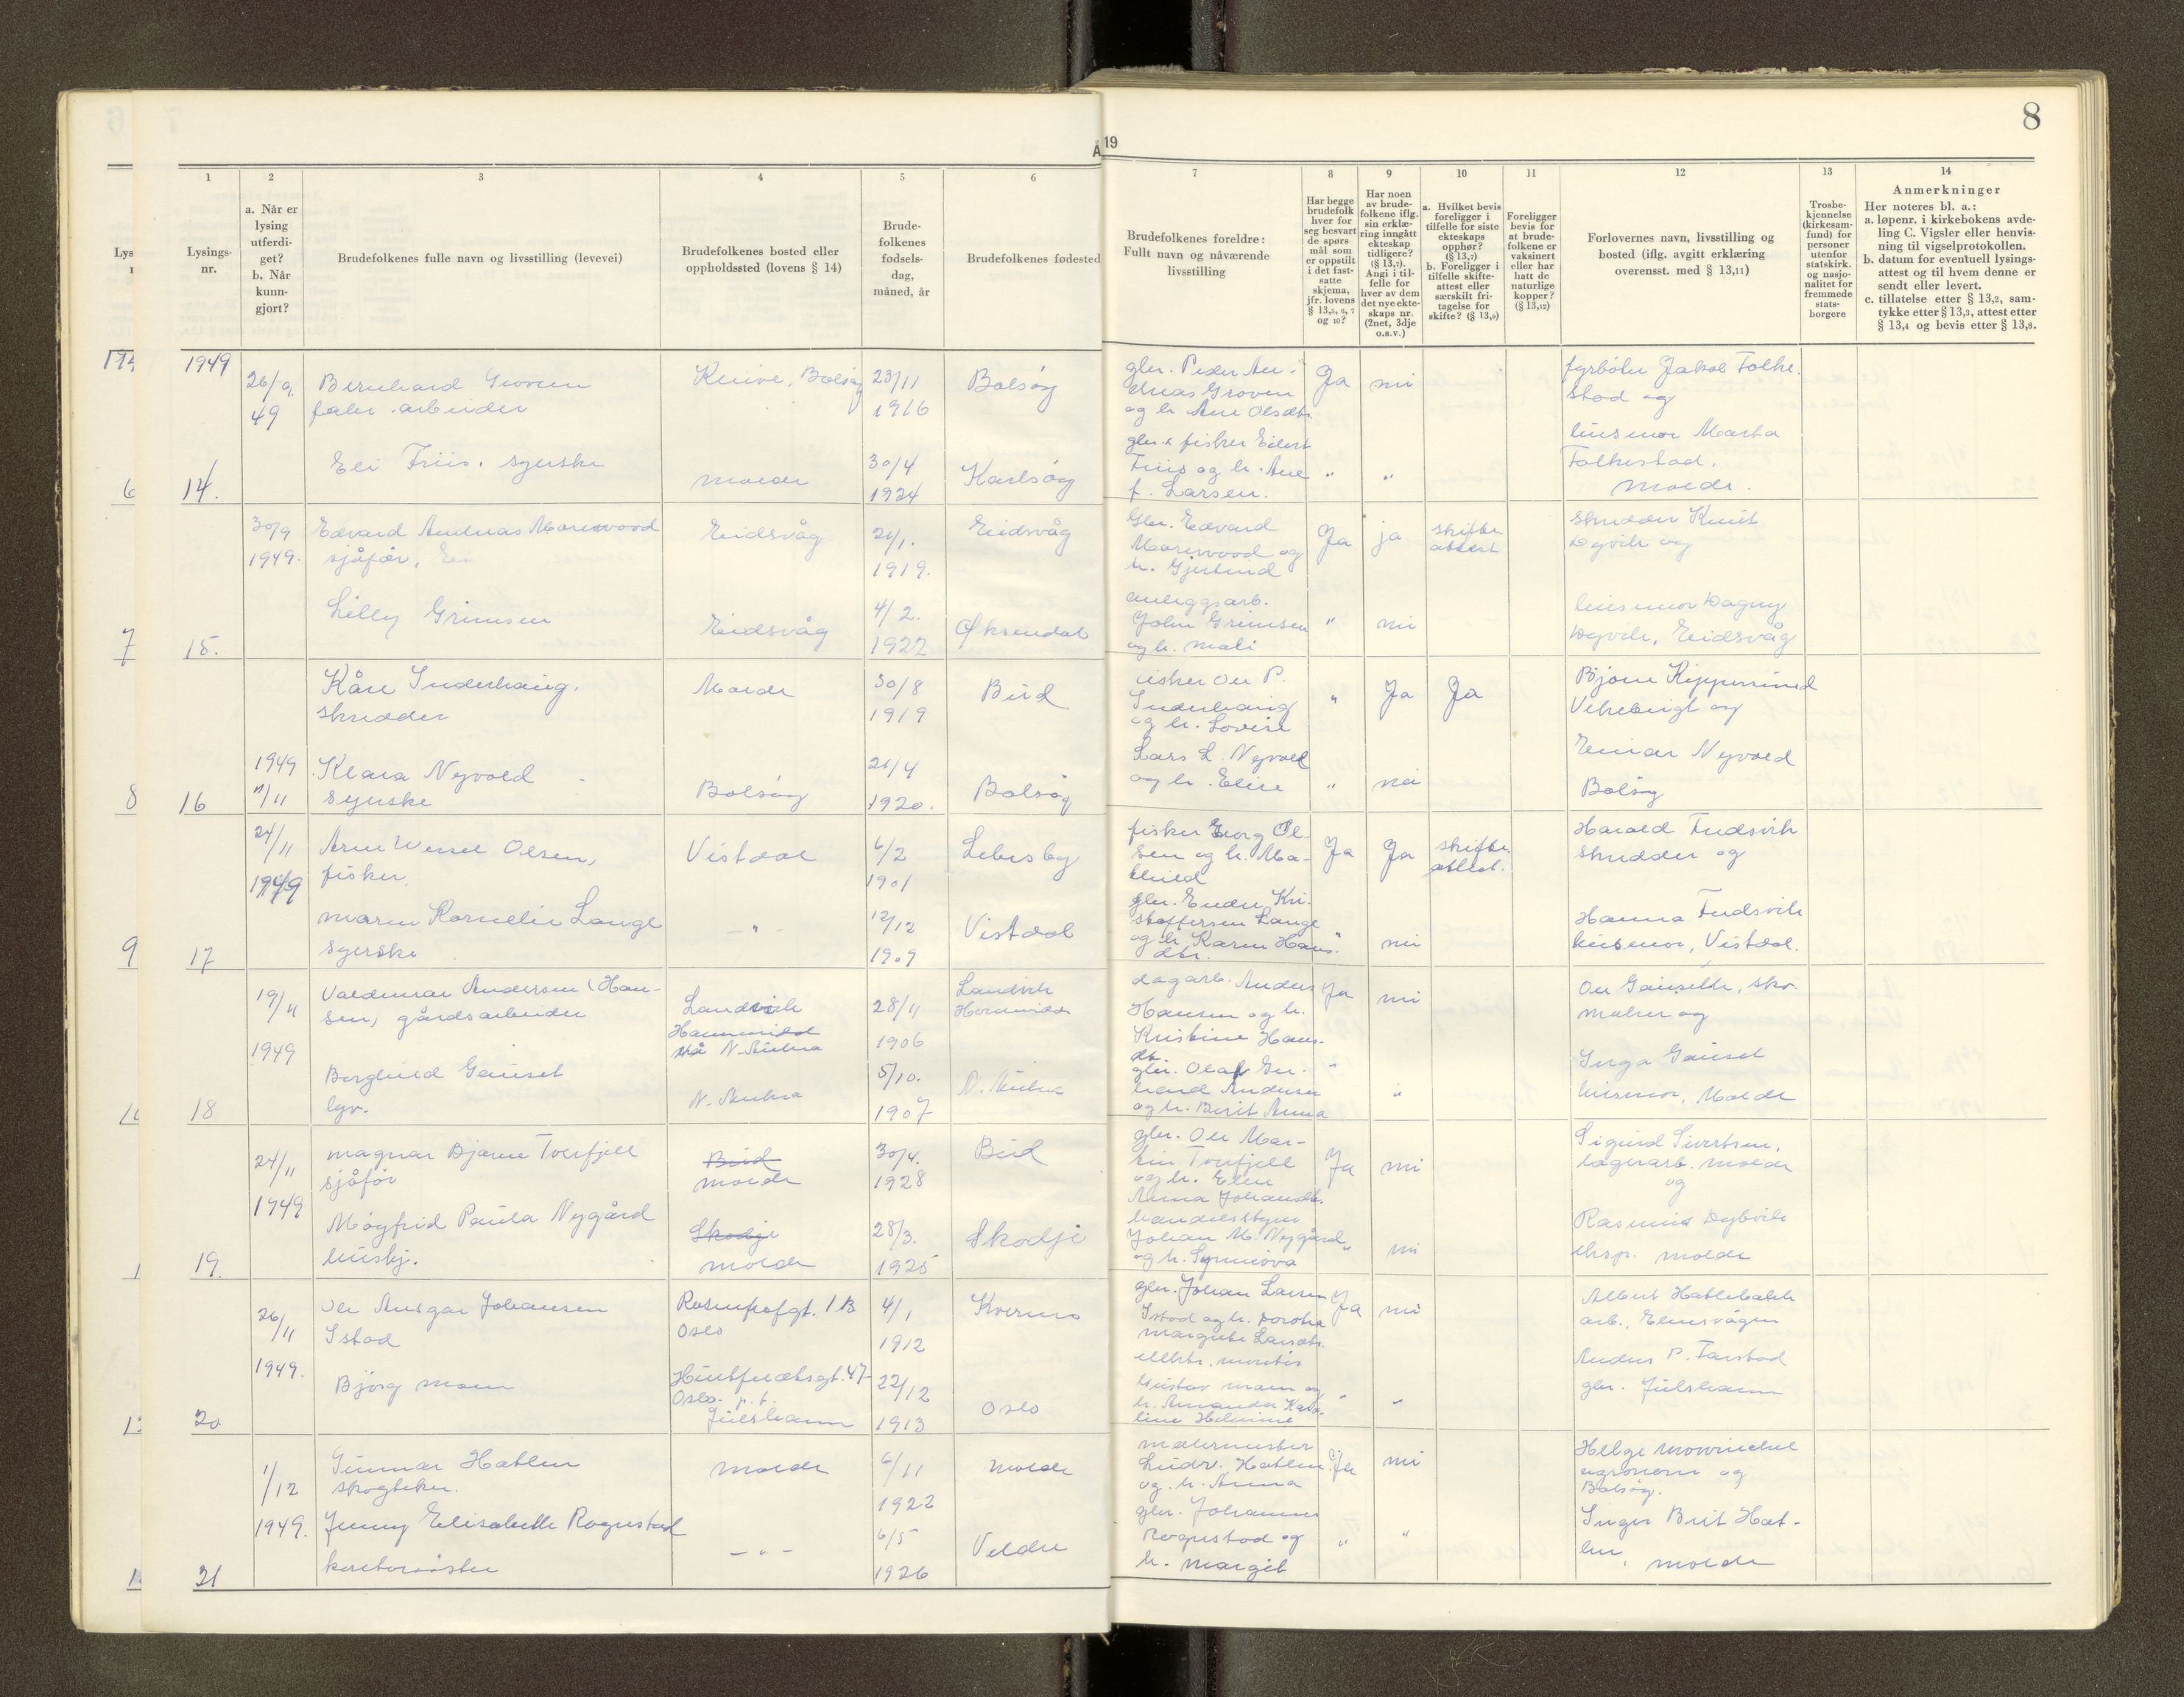 8
Å 19
1
2
3
4
5
6
7
8
9
10
11
12
13
14
Lysings-
nr.
a. Når er
lysing
utferdi-
get?
b. Når
kunn-
gjort?
Brudefolkenes fulle navn og livsstilling (levevei)
Brudefolkenes bosted eller
oppholdssted (lovens § 14)
Brude-
folkenes
fødsels-
dag,
måned, år
Brudefolkenes fødested
Brudefolkenes foreldre:
Fullt navn og nåværende
livsstilling
Har begge
brudefolk
hver for
seg besvart
de spørs-
mål som
er oppstilt
i det fast-
satte
skjema,
jfr. lovens
§ 13,5, 6, 7
og 10?
Har noen
av brude-
folkene iflg.
sin erklæ-
ring inngått
ekteskap
tidligere?
(§ 13,7).
Angi i til-
felle for
hver av dem
det nye ekte-
skaps nr.
(2net, 3dje
o.s.v.)
a. Hvilket bevis
foreligger i
tilfelle for siste
ekteskaps
opphør?
(§ 13,7)
b. Foreligger i
tilfelle skifte-
attest eller
særskilt fri-
tagelse for
skifte? (§ 13,9)
Foreligger
bevis for
at brude-
folkene er
vaksinert
eller har
hatt de
naturlige
kopper?
(§ 13,12)
Forlovernes navn, livsstilling og
bosted (iflg. avgitt erklæring
overensst. med § 13,11)
Trosbe-
kjennelse
(kirkesam-
fund) for
personer
utenfor
statskirk.
og nasjo-
nalitet for
fremmede
stats-
borgere
Anmerkninger
Her noteres bl. a.:
a. løpenr. i kirkebokens avde-
ling C. Vigsler eller henvis-
ning til vigselprotokollen.
b. datum for eventuell lysings-
attest og til hvem denne er
sendt eller levert.
c. tillatelse etter § 13,2, sam-
tykke etter § 13,3, attest etter
§ 13,4 og bevis etter § 13,8.
1949
14.
26/9.
49
Bernhard Groven
fabr. arbeider
Eli Friis. syerske
Bolsøy
molde
23/11
1916
30/4
1924
Bolsøy
Karlsøy
gbr. Peder An-
dreas Groven
og h. Ane Olsdtr.
gbr. & fisker Eilert
Friis og h. Ane
f. Larsen.
Ja nei
" "
fyrbøter Jakob Folke-
stad og
husmor Marta
Folkestad.
molde.
15.
30/9
1949.
Edvard Andreas Morewood
sjåfør,
Lilly Grimsen
Eidsvåg
Eidsvåg
21/1.
1919.
4/2.
1922
Eidsvåg
Øksendal
Gbr. Edvard
Morewood og
h. Gjertrud
anleggsarb.
John Grimsen
og h. Mali
Ja ja skifte
attest
" nei
Skredder Knut
Dyvik og
husmor Dagny
Dyvik, Eidsvåg
16
1949
11/11
Kåre Inderhaug.
skredder
Klara Nyvold
syerske
Molde
Bolsøy
30/8
1919
21/4
1920.
Bud
Bolsøy
fisker Ole P.
Inderhaug
og h. Lovise
Lars L. Nyvold
og h. Elise
" Ja Ja
" nei
Vikebugt og
Einar Nyvold
Bolsøy
17
24/11
1949
Arne Wessel Olsen,
fisker.
Maren Kornelie Lange
syerske
Vistdal
- " -
6/2
1901
12/12
1909
Lebesby
Vistdal
fisker Georg Ol-
sen og h. Ma-
thild
gbr. Endre Kri-
stoffersen Lange
og h. Karen Hans-
dtr.
Ja Ja skifte-
attest.
" nei
Harald Fudsvik
skredder og
Hanna Fudsvik
husmor, Vistdal.
18
19/11
1949
Valdemar Andersen (Han-
sen) gårdsarbeider
Borghild Gauset
Landvik
nå N. Aukra
N. Aukra
28/11
1906
5/10.
1907
Landvik
N. Aukra
dagarb. Anders
Hansen og h.
Kristine Hans-
dtr.
gbr. Olaf
Andersen
og h. Berit Anna
Ja nei
" "
Ole Gauseth, sko-
maker og
Inga Gauset
husmor, Molde
19.
24/11
1949
Magnar Bjarne Tverfjell
sjåfør
Møyfrid Paula Nygård
hushj.
Bud
molde
Skodje
molde
30/4.
1928
28/3.
1925
Bud
Skodje
gbr. Ole Mar-
tin Tverfjell
og h. Elen
Anna Johansdtr.
handelsstyrer
Johan M. Nygård
og h. Synnøva
Ja nei
" nei
Sigurd Sivertsen,
lagerarb. molde
og
Rasmus Dybvik
eksp. molde
20
26/11
1949.
Ole Ansgar Johansen
Istad
Bjørg Moen
Rosenhofgt. 1 B
Oslo
Oslo. p. t.
Julshamn
4/1
1912
22/12
1913
Kvernes
Oslo
gbr. Johan Larsen
Istad og h. Dorothea
Margrete Larsdtr.
elektr. montør
Gustav Moen og
h. Amanda Karo-
line Helmine
Ja nei
" "
Albert Hatlebakk
arb., Elnesvågen
Anders P. Farstad
gbr. Julshamn
21
1/12
1949.
Gunnar Hatlen
skogtekn.
Jenny Elisabeth Rognstad
kontorsøster
molde
- " -
6/11
1922
6/5
1926
molde
Veldre
malermester
Ludv. Hatlen
og h. Anna
gbr. Johannes
Rognstad og
h. Margit
Ja nei
" "
agronom og
Bolsøy.
Inger Brit Hat-
len, molde